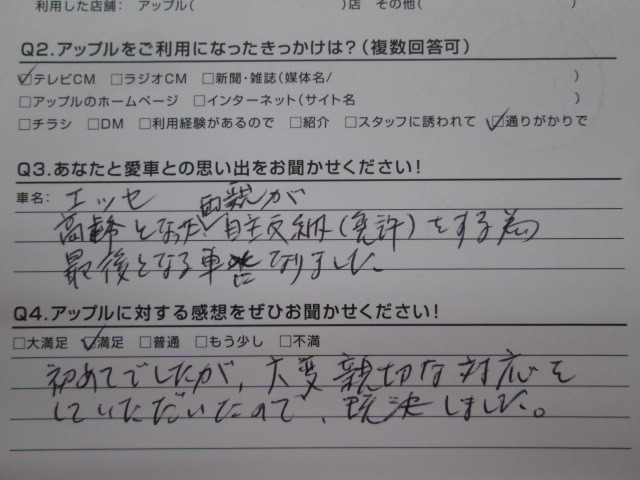 利用した店舗: アップル( )店 その他(
Q2.アップルをご利用になったきっかけは?(複数回答可)
☑テレビCM □ラジオCM □新聞・雑誌(媒体名/ )
□アップルのホームページ □インターネット(サイト名 )
□チラシ □DM □利用経験があるので □紹介 □スタッフに誘われて ☑通りがかりで
Q3.あなたと愛車との思い出をお聞かせください!
車名: エッセ
両親が
高齢となった 自主交納(免許)をする為
最後となる車になりました。
Q4.アップルに対する感想をぜひお聞かせください!
□大満足 ☑満足 □普通 □もう少し □不満
初めてでしたが、大変親切な対応を
していただいたので、即決しました。